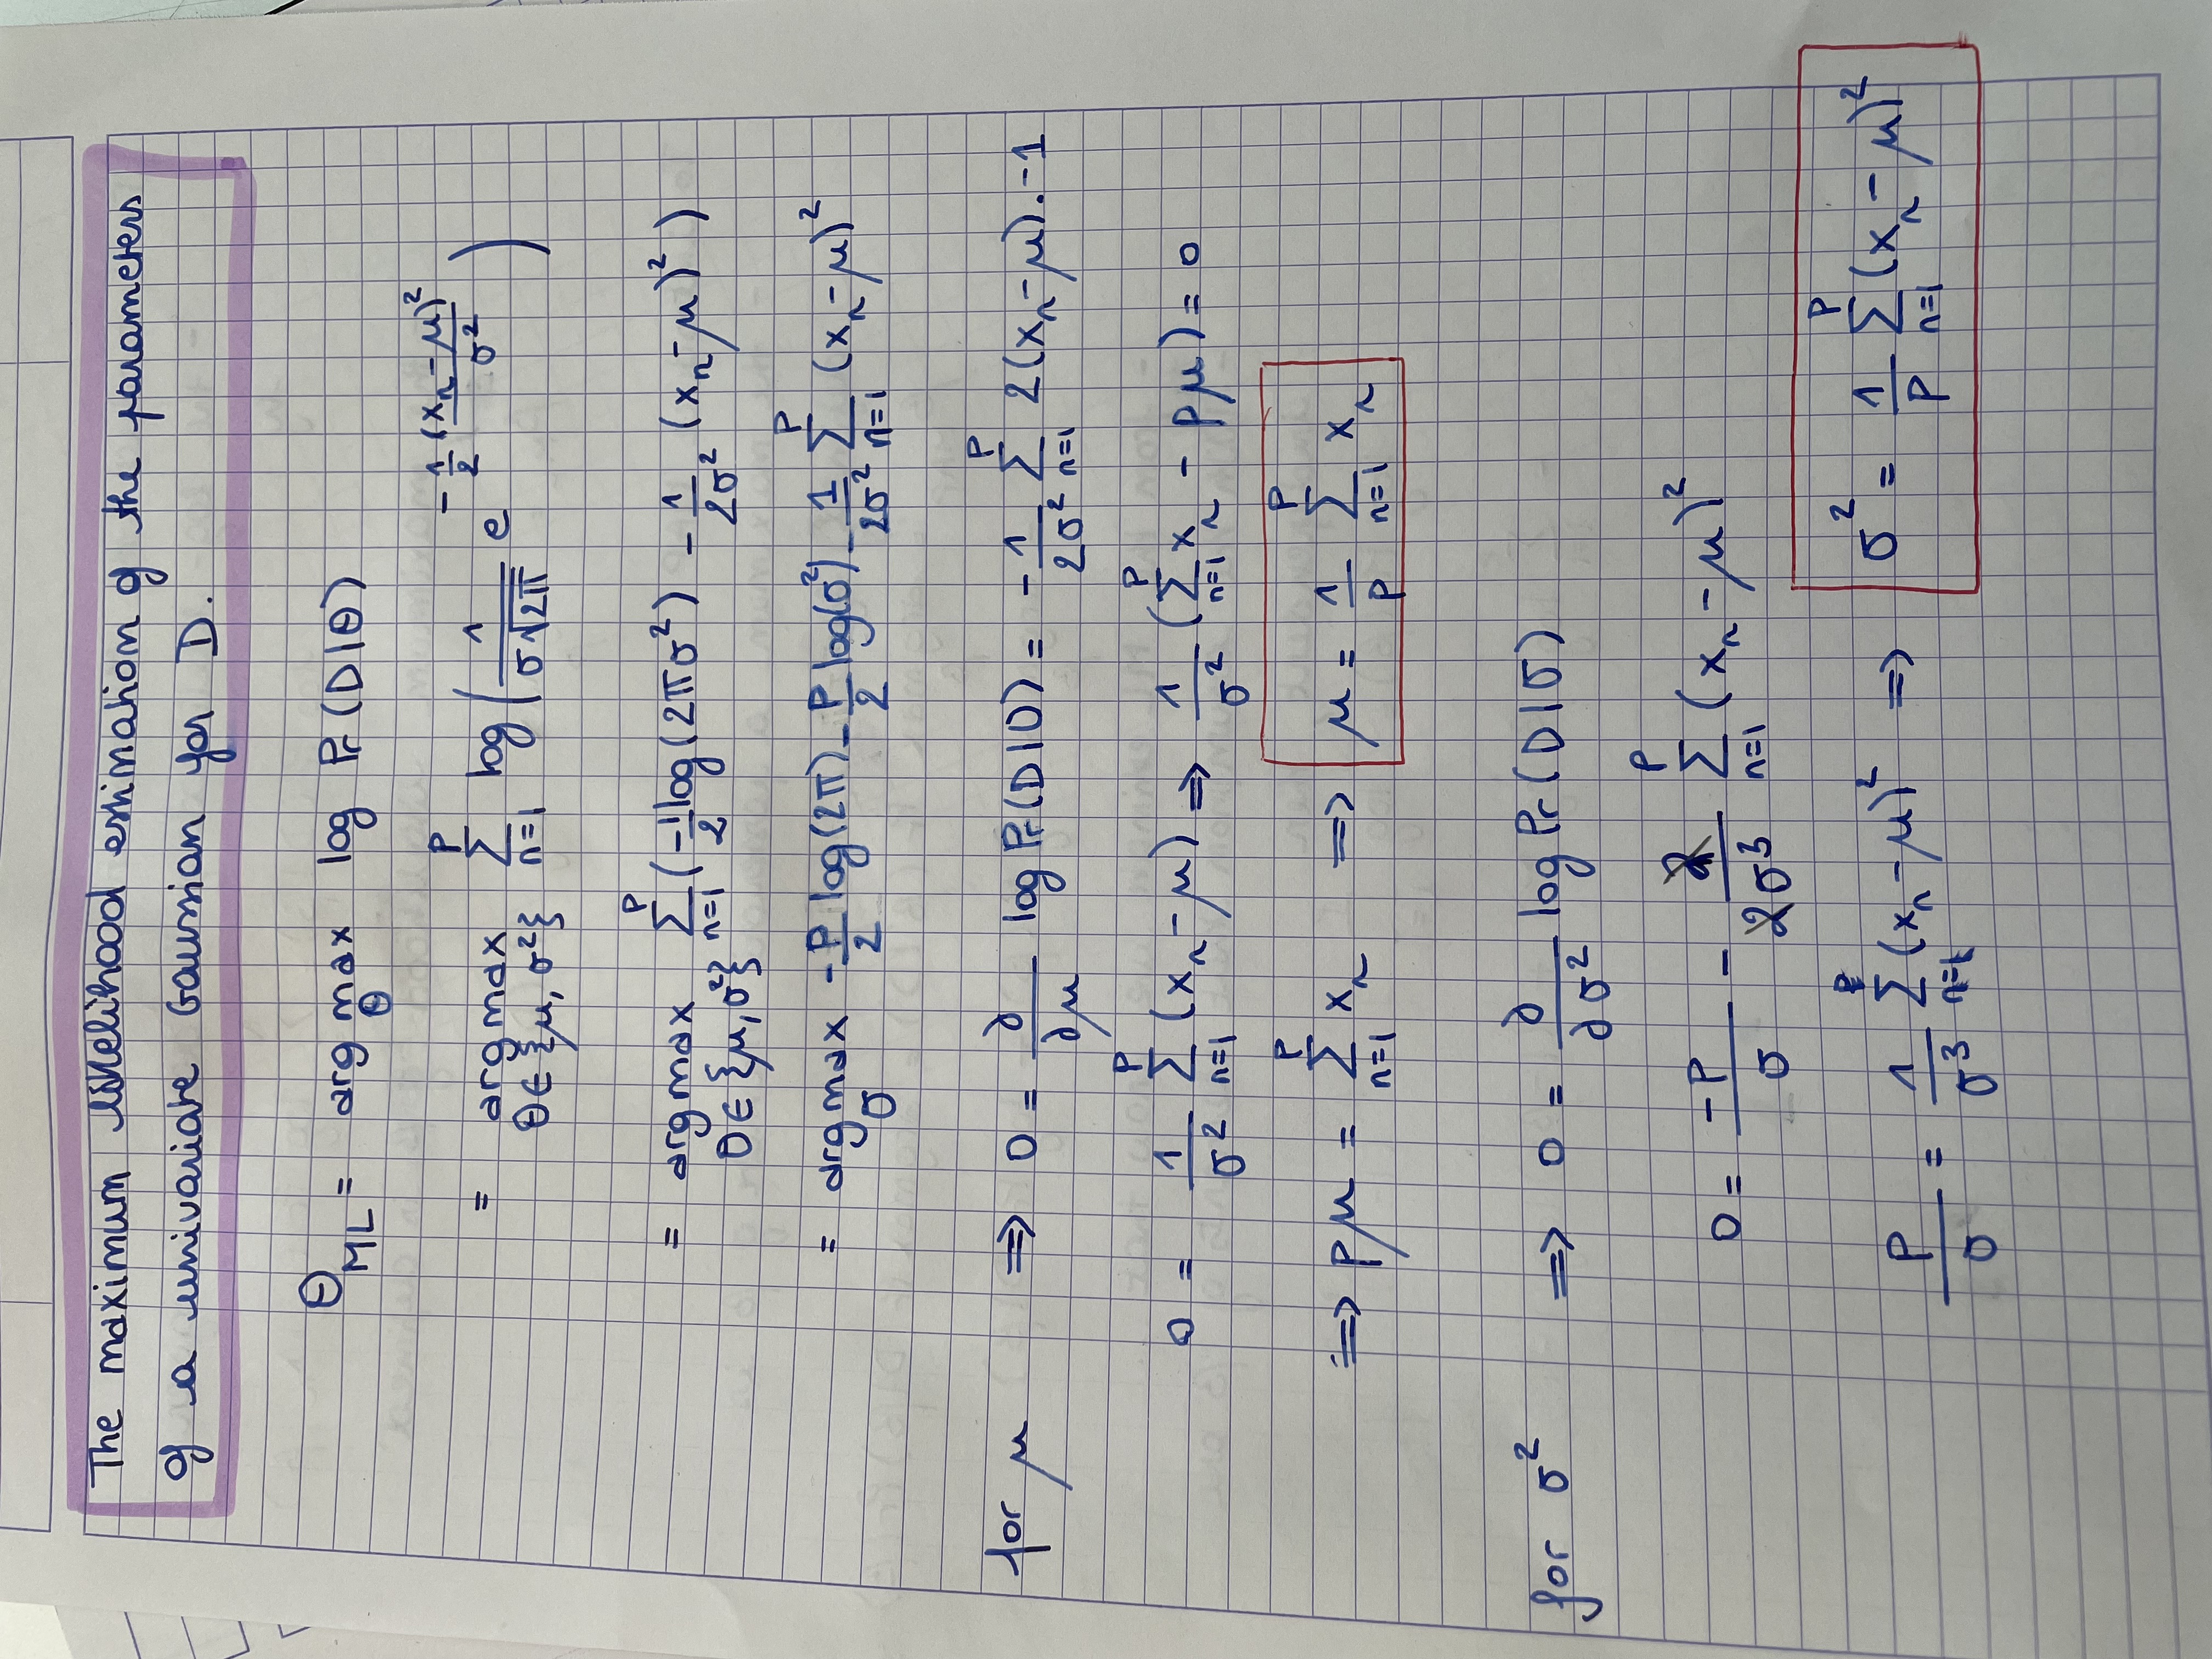 The maximum likelihood estimation of the parameters
of a univariate Gaussian for D.
Θ_ML = arg max_Θ log Pr(D|Θ)
= arg max_{Θ∈{μ, σ²}} Σ_{n=1}^{P} log( 1/(σ√2π) e^{-1/2 (x_n-μ)²/σ²} )
= arg max_{Θ∈{μ, σ²}} Σ_{n=1}^{P} (-1/2 log(2πσ²) - 1/2σ² (x_n-μ)²)
= arg max_σ -P/2 log(2π) - P/2 log(σ²) - 1/2σ² Σ_{n=1}^{P} (x_n-μ)²
for μ ⟹ 0 = ∂/∂μ log Pr(D|Θ) = -1/2σ² Σ_{n=1}^{P} 2(x_n-μ).-1
0 = 1/σ² Σ_{n=1}^{P} (x_n-μ) ⟹ 1/σ² (Σ_{n=1}^{P} x_n - pμ) = 0
⟹ pμ = Σ_{n=1}^{P} x_n ⟹ μ = 1/P Σ_{n=1}^{P} x_n
for σ² ⟹ 0 = ∂/∂σ² log Pr(D|σ)
0 = -P/σ - 2/2σ³ Σ_{n=1}^{P} (x_n-μ)²
P/σ = 1/σ³ Σ_{n=1}^{P} (x_n-μ)² ⟹ σ² = 1/P Σ_{n=1}^{P} (x_n-μ)²